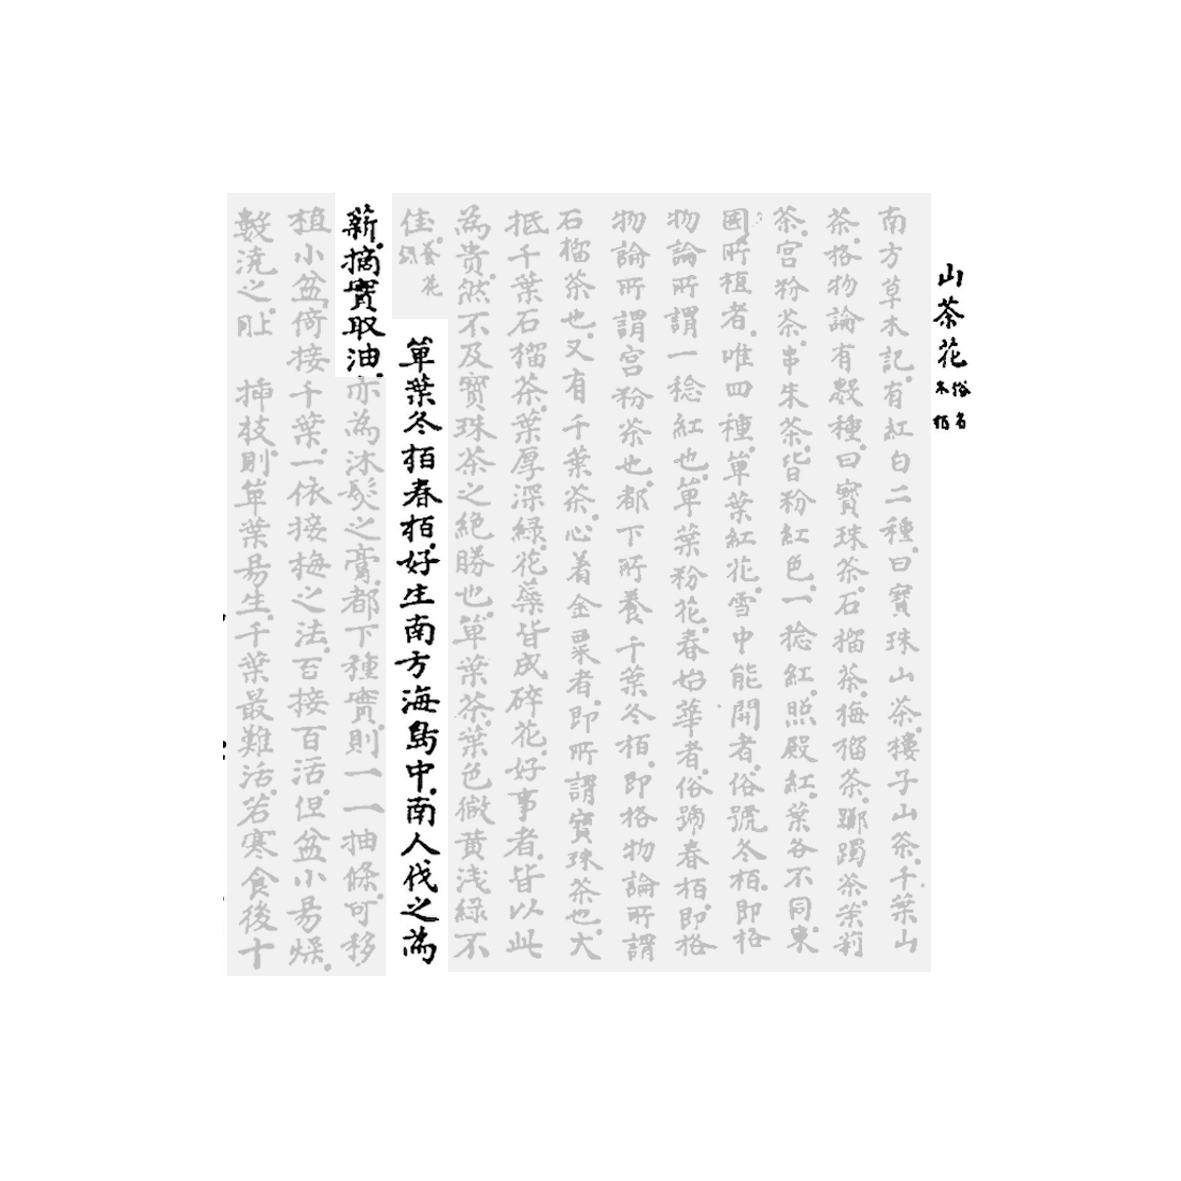 山茶花 俗名冬栢
南方草木記有紅白二種曰寶珠山茶樓子山茶千葉山
茶格物論有數種曰寶珠茶石榴茶梅榴茶躑躅茶茉莉
茶宮粉茶串朱茶皆粉紅色一稔紅照殿紅葉各不同東
國所植者唯四種單葉紅花雪中能開者俗號冬栢即格
物論所謂一稔紅也單葉粉花春始華者俗號春栢即格
物論所謂宮粉茶也都下所養千葉冬栢即格物論所謂
石榴茶也又有千葉茶心着金粟者即所謂寶珠茶也大
抵千葉石榴茶葉厚深綠花蘂皆成碎花好事者皆以此
為貴然不及寶珠茶之絕勝也單葉茶葉色微黃浅綠不
佳 養花錄 單葉冬栢春栢好生南方海島中南人伐之為
薪摘實取油亦為沐髮之膏都下種實則一一抽條可移
植小盆倚接千葉一依接梅之法百接百活但盆小易燥
數澆之 挿枝則單葉易生千葉最難活若寒食後十